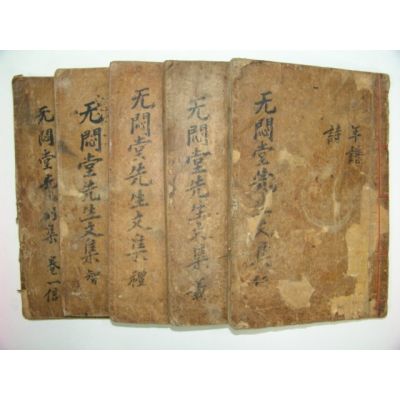 年譜
詩
无悶堂先生文集 仁
无悶堂先生文集 義
无悶堂先生文集 禮
无悶堂先生文集 智
无悶堂先生別集 卷一信